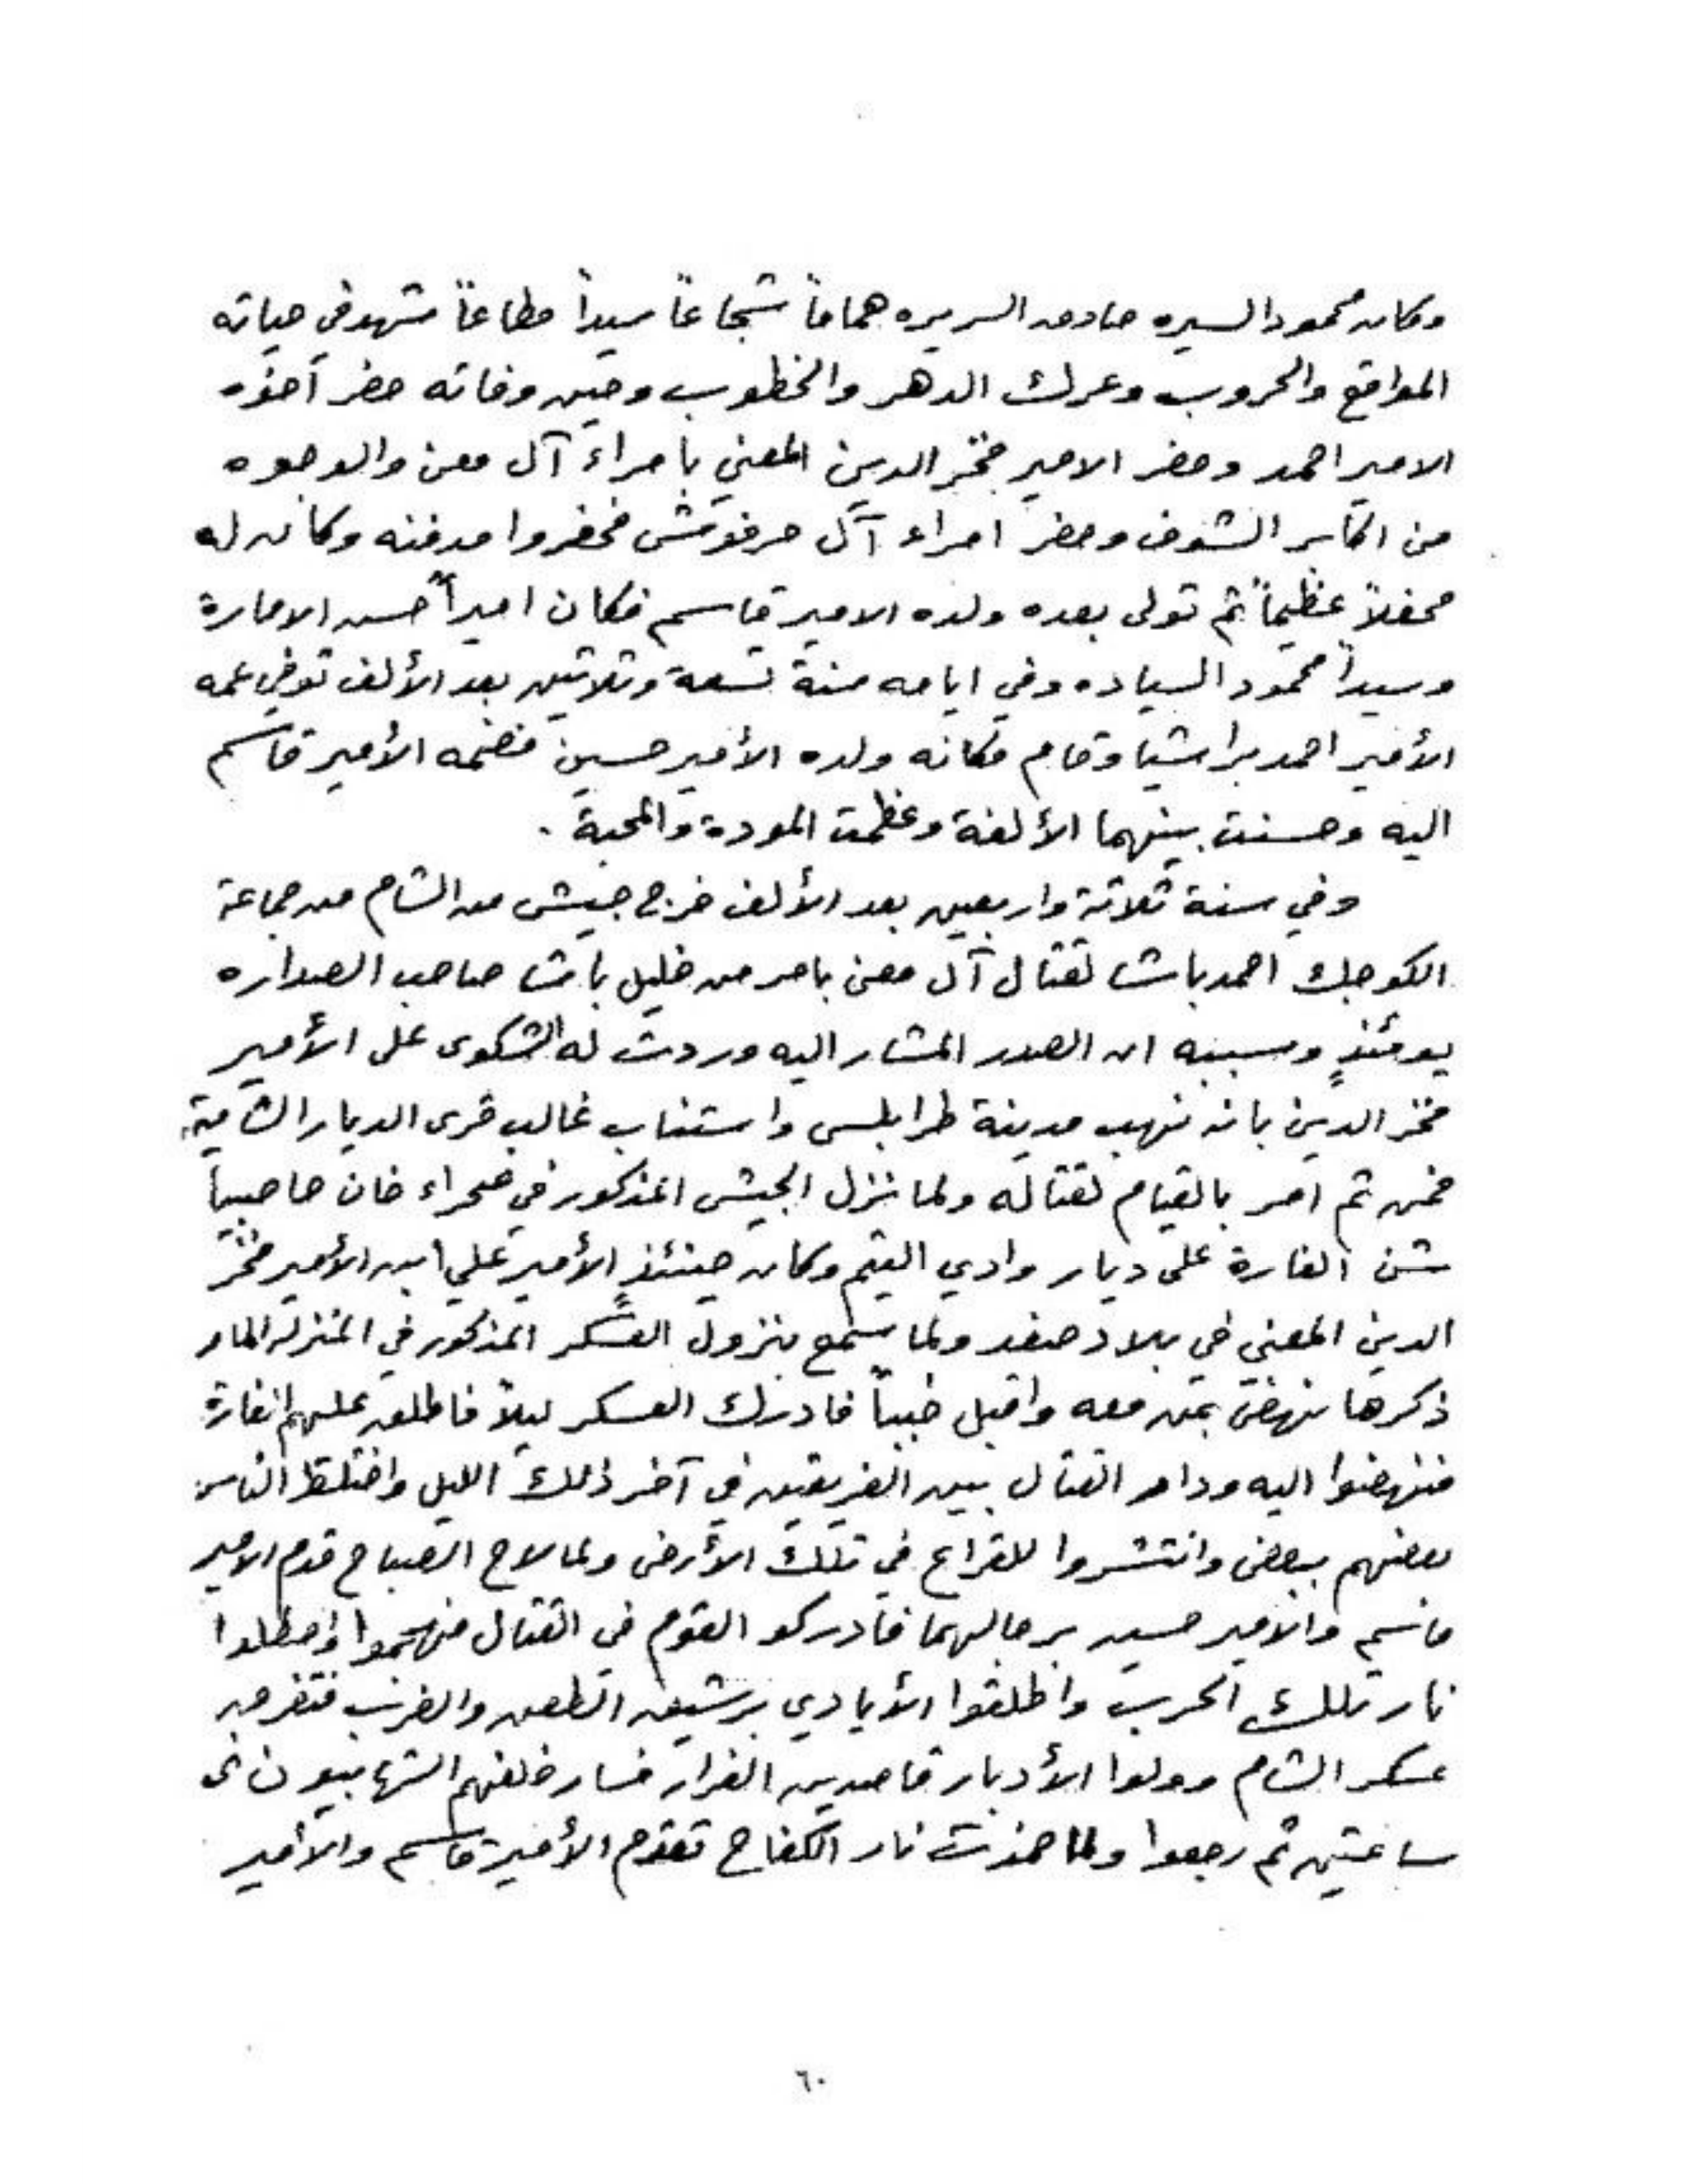 وكان محمود السيره صادق السريره هماماً شجاعاً سيداً مطاعاً شهد في حياته
المواقع والحروب وعرك الدهر والخطوب وحين وفاته حضر أخوه
الامير احمد وحضر الامير فخر الدين المعني بامراء آل معن والوجوه
من اكابر الشوف وحضر امراء آل حرفوش فحضروا مدفنه وكان له
محفلاً عظيماً ثم تولى بعده ولده الامير قاسم فكان اميراً حسن الامارة
وسيداً محمود السياده وفي ايامه سنة تسعة وثلاثين بعد الألف توفي عمه
الأمير احمد براشيا وقام مكانه ولده الأمير حسين فضمه الأمير قاسم
اليه وحسنت بينهما الألفة وعظمت المودة والمحبة .
وفي سنة ثلاثة واربعين بعد الألف خرج جيش من الشام من جماعة
الكوجك احمد باشا لقتال آل معن بامر من خليل باشا صاحب الصداره
يومئذٍ وسببه ان الصدر المشار اليه وردت له الشكوى على الأمير
فخر الدين بانه نهب مدينة طرابلس واستناب غالب قرى الديار الشامية
فمن ثم امر بالقيام لقتاله ولما نزل الجيش المذكور في صحراء خان حاصبيا
شن الغارة على ديار وادي التيم وكان حينئذٍ الأمير علي ابن الأمير فخر
الدين المعني في بلاد صفد ولما سمع بنزول العسكر المذكور في المنزله المار
ذكرها نهض بمن معه واقبل خبباً فادرك العسكر ليلاً فاطلق عليهم الغارة
فنهضوا اليه ودام القتال بين الفريقين في آخر ذلك الليل واختلط الناس
بعضهم ببعض وانتشروا للقراع في تلك الأرض ولما لاح الصباح قدم الامير
قاسم والامير حسين برجالهما فادركو القوم في القتال فهجموا واصطلوا
نار تلك الحرب واطلقوا الأيادي برشيق الطعن والضرب فتقهقر
عسكر الشام وولوا الأدبار قاصدين الفرار فسار خلفهم الشهابيون نحو
ساعتين ثم رجعوا ولما خمدت نار الكفاح تقدم الأمير قاسم والأمير
٦٠